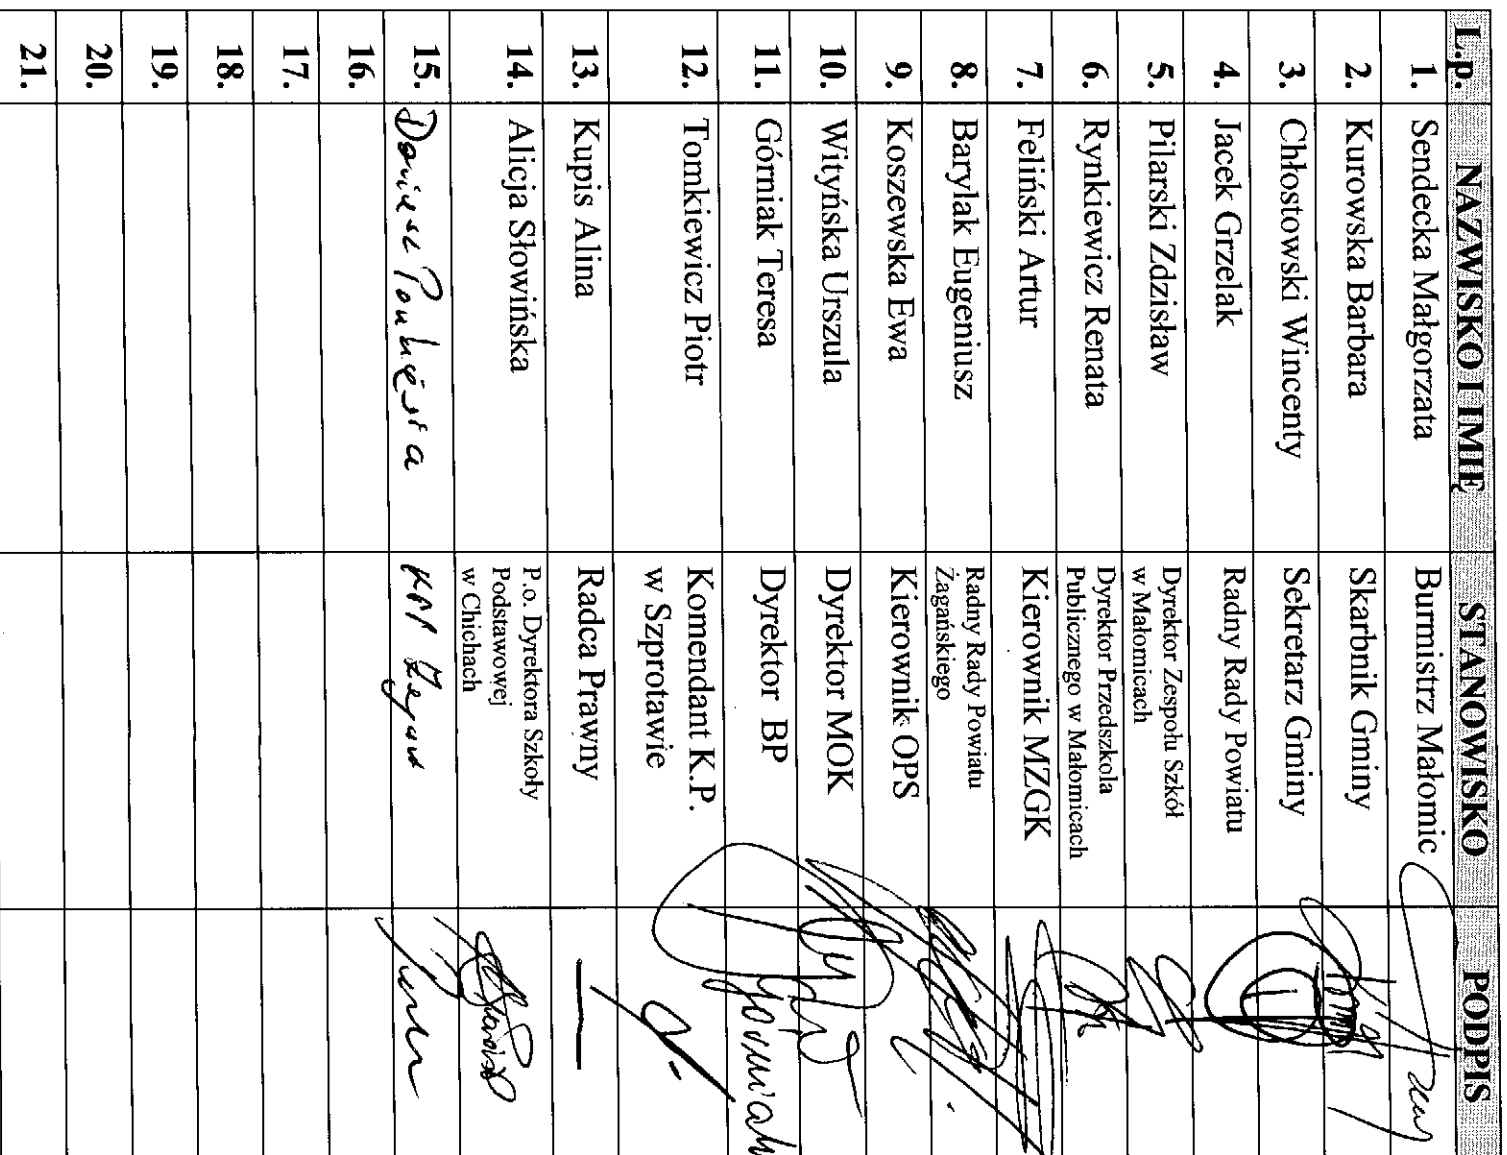 L.p. NAZWISKO I IMIĘ STANOWISKO PODPIS
1. Sendecka Małgorzata Burmistrz Małomic
2. Kurowska Barbara Skarbnik Gminy
3. Chłostowski Wincenty Sekretarz Gminy
4. Jacek Grzelak Radny Rady Powiatu
5. Pilarski Zdzisław Dyrektor Zespołu Szkół
w Małomicach
6. Rynkiewicz Renata Dyrektor Przedszkola
Publicznego w Małomicach
7. Feliński Artur Kierownik MZGK
8. Barylak Eugeniusz Radny Rady Powiatu
Żagańskiego
9. Koszewska Ewa Kierownik OPS
10. Wityńska Urszula Dyrektor MOK
11. Górniak Teresa Dyrektor BP Górniak
12. Tomkiewicz Piotr Komendant K.P.
w Szprotawie
13. Kupis Alina Radca Prawny —
14. Alicja Słowińska P.o. Dyrektora Szkoły
Podstawowej
w Chichach
15. KPP
16.
17.
18.
19.
20.
21.